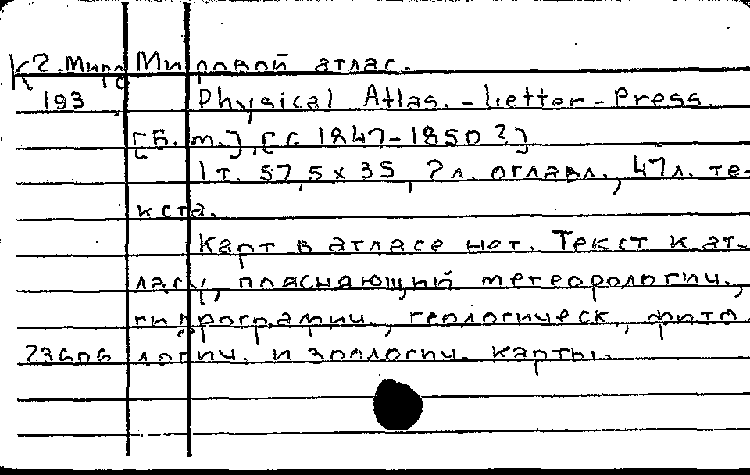 К2.Мир Мировой атлас.
193 Physical Atlas. - Letter-Press.
[Б. т.], [с 1847-1850?]
1 т. 57,5 х 35, 2 л. оглавл., 47 л. те-
кста.
Карт в атласе нет. Текст к ат-
ласу, поясняющий метеорологич.,
гидрографич., геологическ., фито
23606 логич. и зоологич. карты.